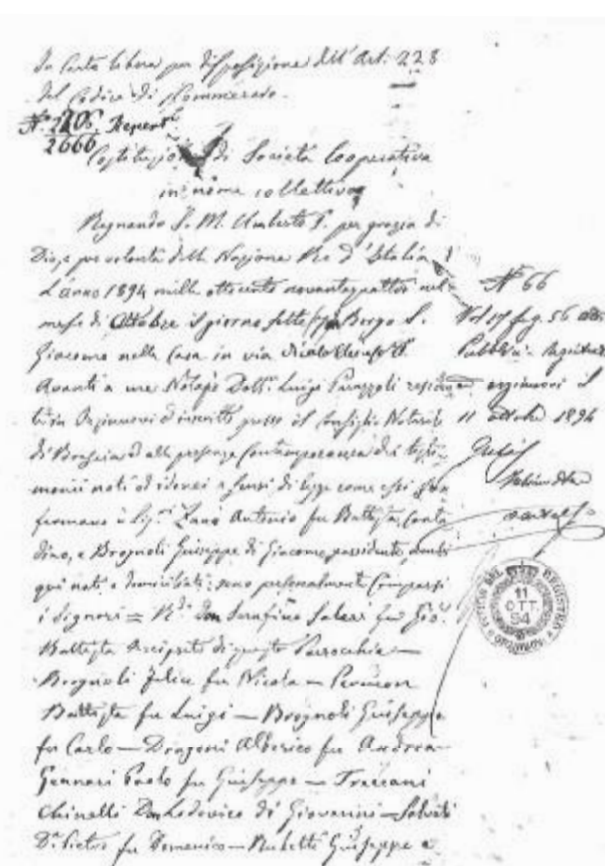 In Carta libera per disposizione dell'Art. 228
del Codice di Commercio.
N.° 2206 Repert.
2666
Costituzione di Società Cooperativa
in nome collettivo
Regnando S. M. Umberto I. per grazia di
Dio, e per volontà della Nazione Re d'Italia
L'anno 1894 mille ottocento novantaquattro nel
mese di Ottobre il giorno sette (7) in Borgo S.
Giacomo nella Casa in via
Avanti a me Notajo Dott. Luigi Parazzoli residen
te in Orzinuovi ed inscritto presso il Consiglio Notarile
di Brescia ed alla presenza contemporanea dei testi
monii noti ed idonei a sensi di legge come essi
fermano i Sig.ri Zanò Antonio fu Battista, Conta
dino, e Brognoli Giuseppe di Giacomo possidente, ambi
qui nati e domiciliati; sono personalmente Comparsi
i Signori = R.do Don Serafino Saleri fu Gio.
Battista Arciprete di questa Parrocchia —
Brognoli Felice fu Nicola —
Battista fu Luigi — Brognoli Giuseppe
fu Carlo — Dragoni Alberico fu Andrea
Gennari Paolo fu Giuseppe — Treccani
Chinelli Don Lodovico di Giovanni —
D.r Pietro fu Domenico — Giuseppe e
N° 66
Vol 17 fog. 56 atti
Pubblici. Registrato
orzinuovi il
11 ottobre 1894
11
OTT.
94